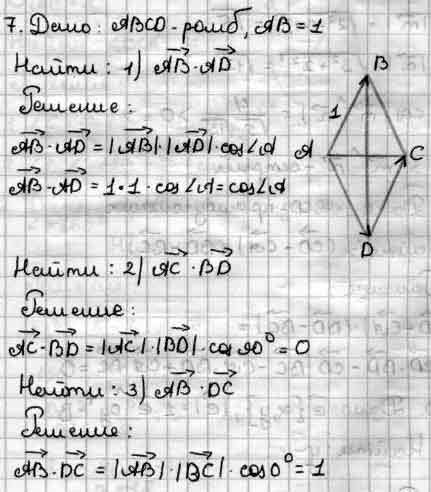 7. Дано: ABCD - ромб, AB = 1
Найти: 1) AB⃗ · AD⃗
Решение:
AB⃗ · AD⃗ = |AB⃗| · |AD⃗| · cos∠A
AB⃗ · AD⃗ = 1 · 1 · cos∠A = cos∠A
B
1
A
C
D
Найти: 2) AC⃗ · BD⃗
Решение:
AC⃗ · BD⃗ = |AC⃗| · |BD⃗| · cos 90° = 0
Найти: 3) AB⃗ · DC⃗
Решение:
AB⃗ · DC⃗ = |AB⃗| · |DC⃗| · cos 0° = 1